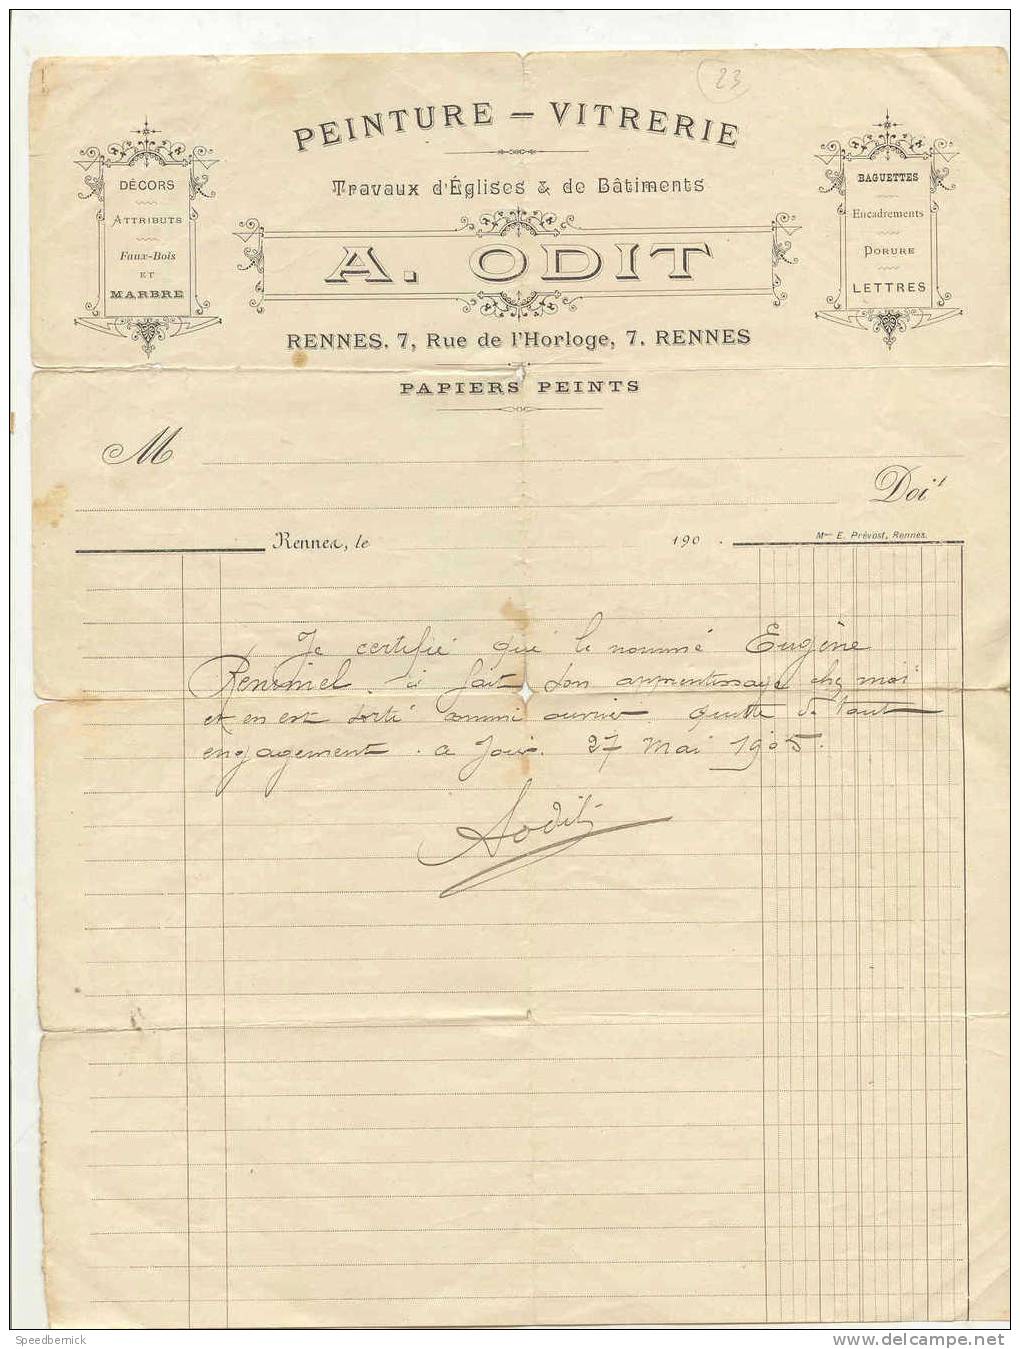 23
PEINTURE – VITRERIE
Travaux d'Églises & de Bâtiments
A. ODIT
RENNES. 7, Rue de l'Horloge, 7. RENNES
PAPIERS PEINTS
DÉCORS
ATTRIBUTS
Faux-Bois
ET
MARBRE
BAGUETTES
Encadrements
DORURE
LETTRES
M
Doit
Rennes, le 190 .
Mson E. Prévost, Rennes.
Je certifie que le nommé Eugène
a fait son apprentissage chez moi
et en est sorti ouvrier quitte de tout
engagement. a Jour. 27 Mai 1905.
Aodit
Speedbernick
www.delcampe.net